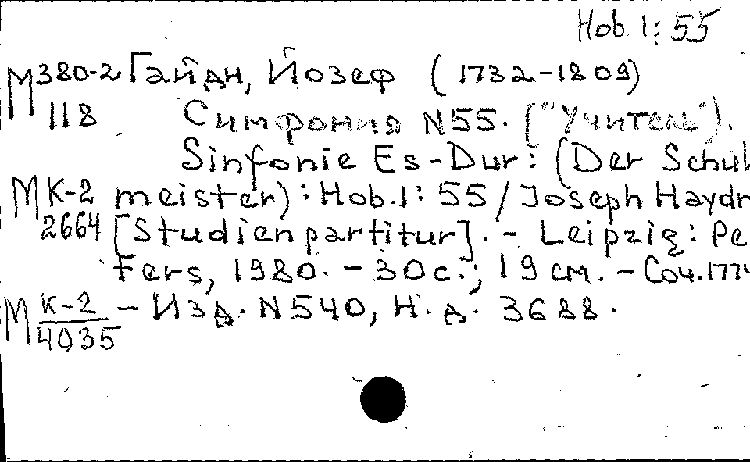 Hob. I: 55
М 380-2 Гайдн, Йозеф (1732-1809)
118 Симфония N55. ("Учитель").
Sinfonie Es-Dur: (Der Schul
М К-2 meister): Hob. I: 55 / Joseph Haydn
2664 [Studienpartitur]. - Leipzig: Pe
ters, 1980. - 30 с.; 19 см. - Соч. 1774
М К-2 - Изд. N540, Н. д. 3688.
4035